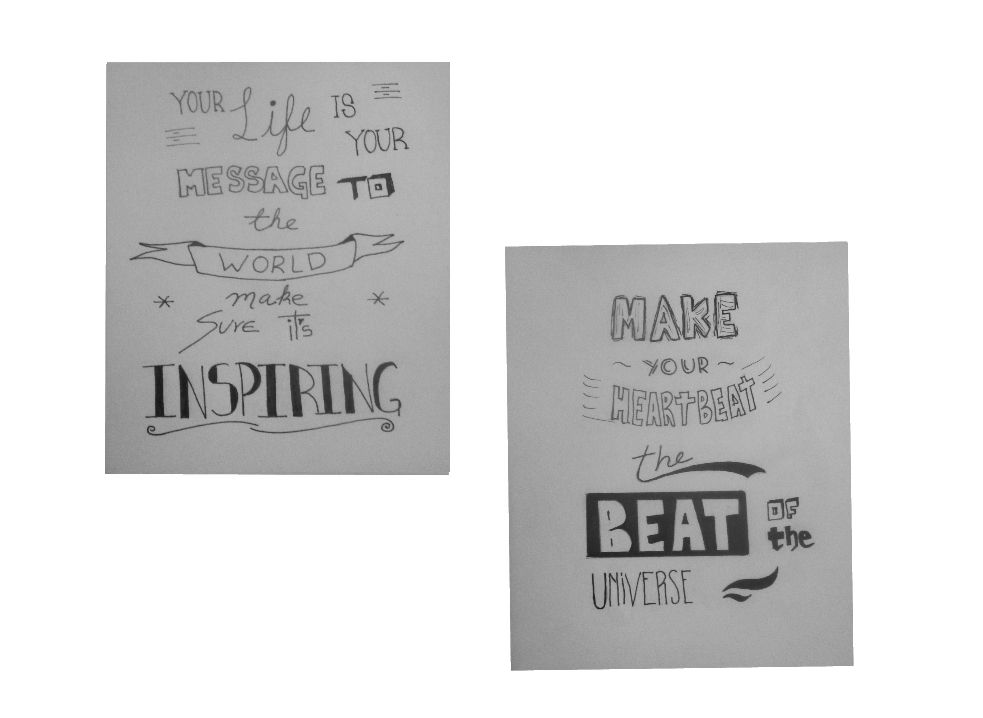 YOUR Life IS
YOUR
MESSAGE TO
the
WORLD
make
Sure it's
INSPIRING
MAKE
~ YOUR ~
HEARTBEAT
the
BEAT OF
the
UNiVERSE